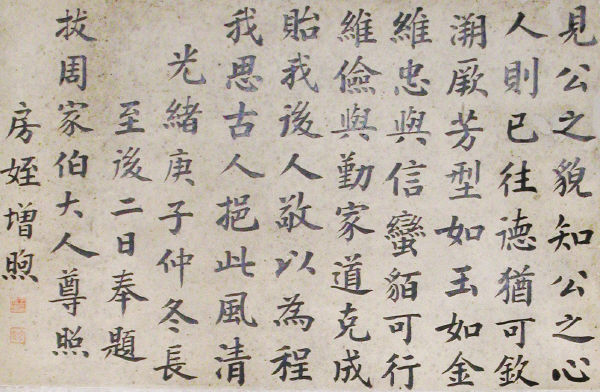 見公之貌知公之心
人則已往德猶可欽
溯厥芳型如玉如金
維忠與信蠻貊可行
維儉與勤家道克成
貽我後人敬以為程
我思古人挹此風清
光緒庚子仲冬長
至後二日奉題
拔周家伯大人尊照
房姪增煦